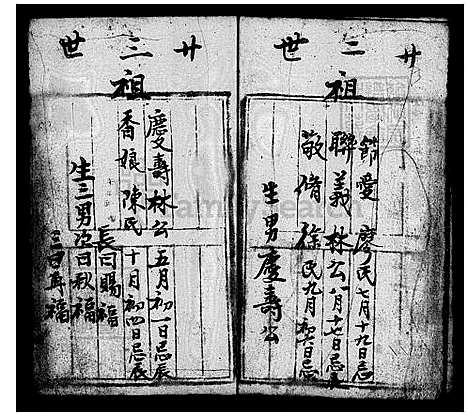 廿二世
祖
節愛廖氏七月十九日忌
聯義林公八月十七日忌辰
敬脩徐氏九月初六日忌
生男慶壽公
廿三世
祖
慶壽林公五月初一日忌辰
香娘陳氏十月初四日忌辰
長曰賜福
生三男次曰秋福
三曰再福